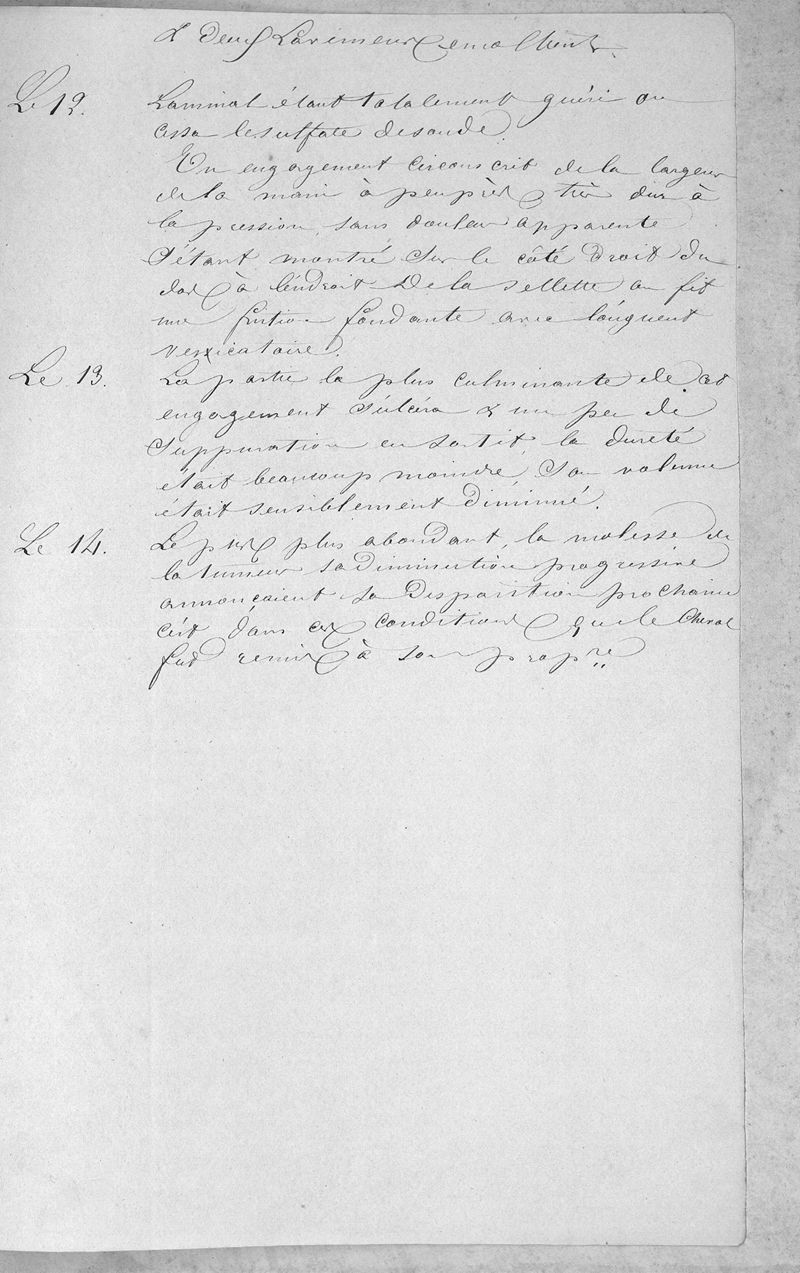 & deux Lavements emollients.
Le 12. L'animal étant totalement guéri on
cessa le sulfate de soude.
Un engagement circonscrit de la largeur
de la main à peu près & très dur à
la pression, sans douleur apparente
s'étant montré sur le côté droit du
dos & à l'endroit de la sellette on fit
une friction fondante avec l'onguent
vesicatoire.
Le 13. La partie la plus culminante de cet
engagement s'ulcéra & un peu de
suppuration en sortit la dureté
était beaucoup moindre, son volume
était sensiblement diminué.
Le 14. Le pus plus abondant, la molesse de
la tumeur sa diminution progressive
annonçaient sa disparition prochaine
c'est dans ces conditions que le Cheval
fut remis à son propre